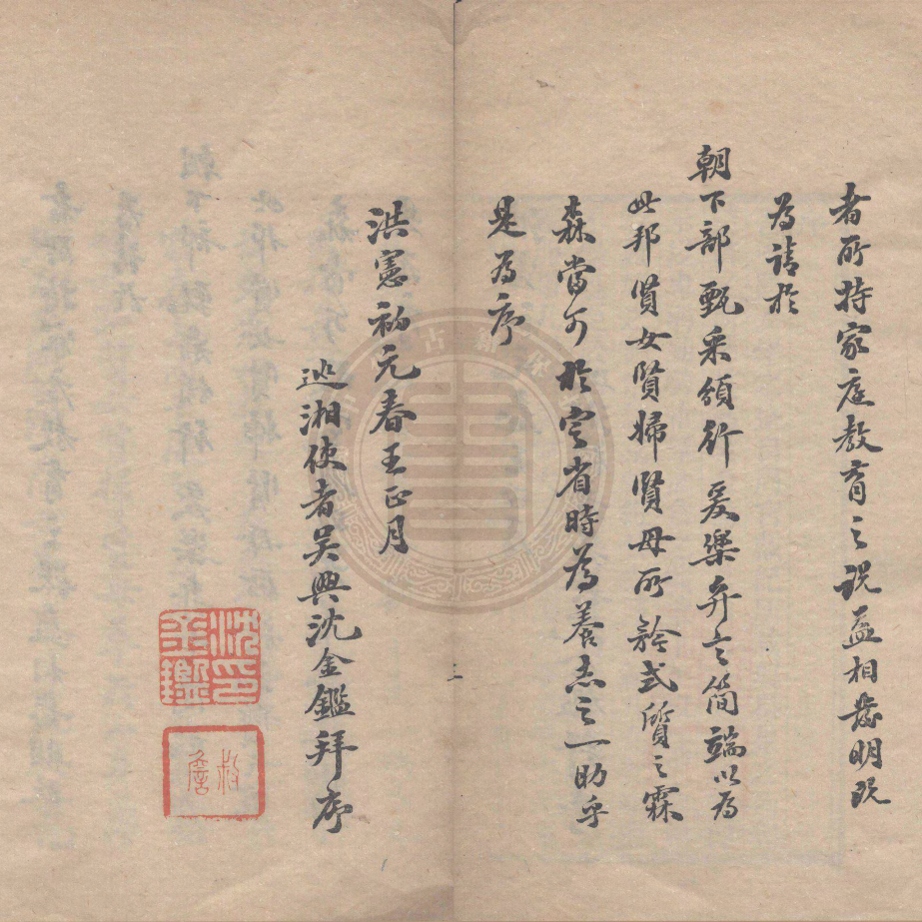 者所持家庭教育之說益相發明既
為請於
朝下部甄采頒行爰樂弁言簡端以為
此邦賢女賢婦賢母所矜式質之霖
森當可於定省時為養志之一助乎
是為序
洪憲初元春王正月
巡湘使者吳興沈金鑑拜序
沈印金鑑
叔詹